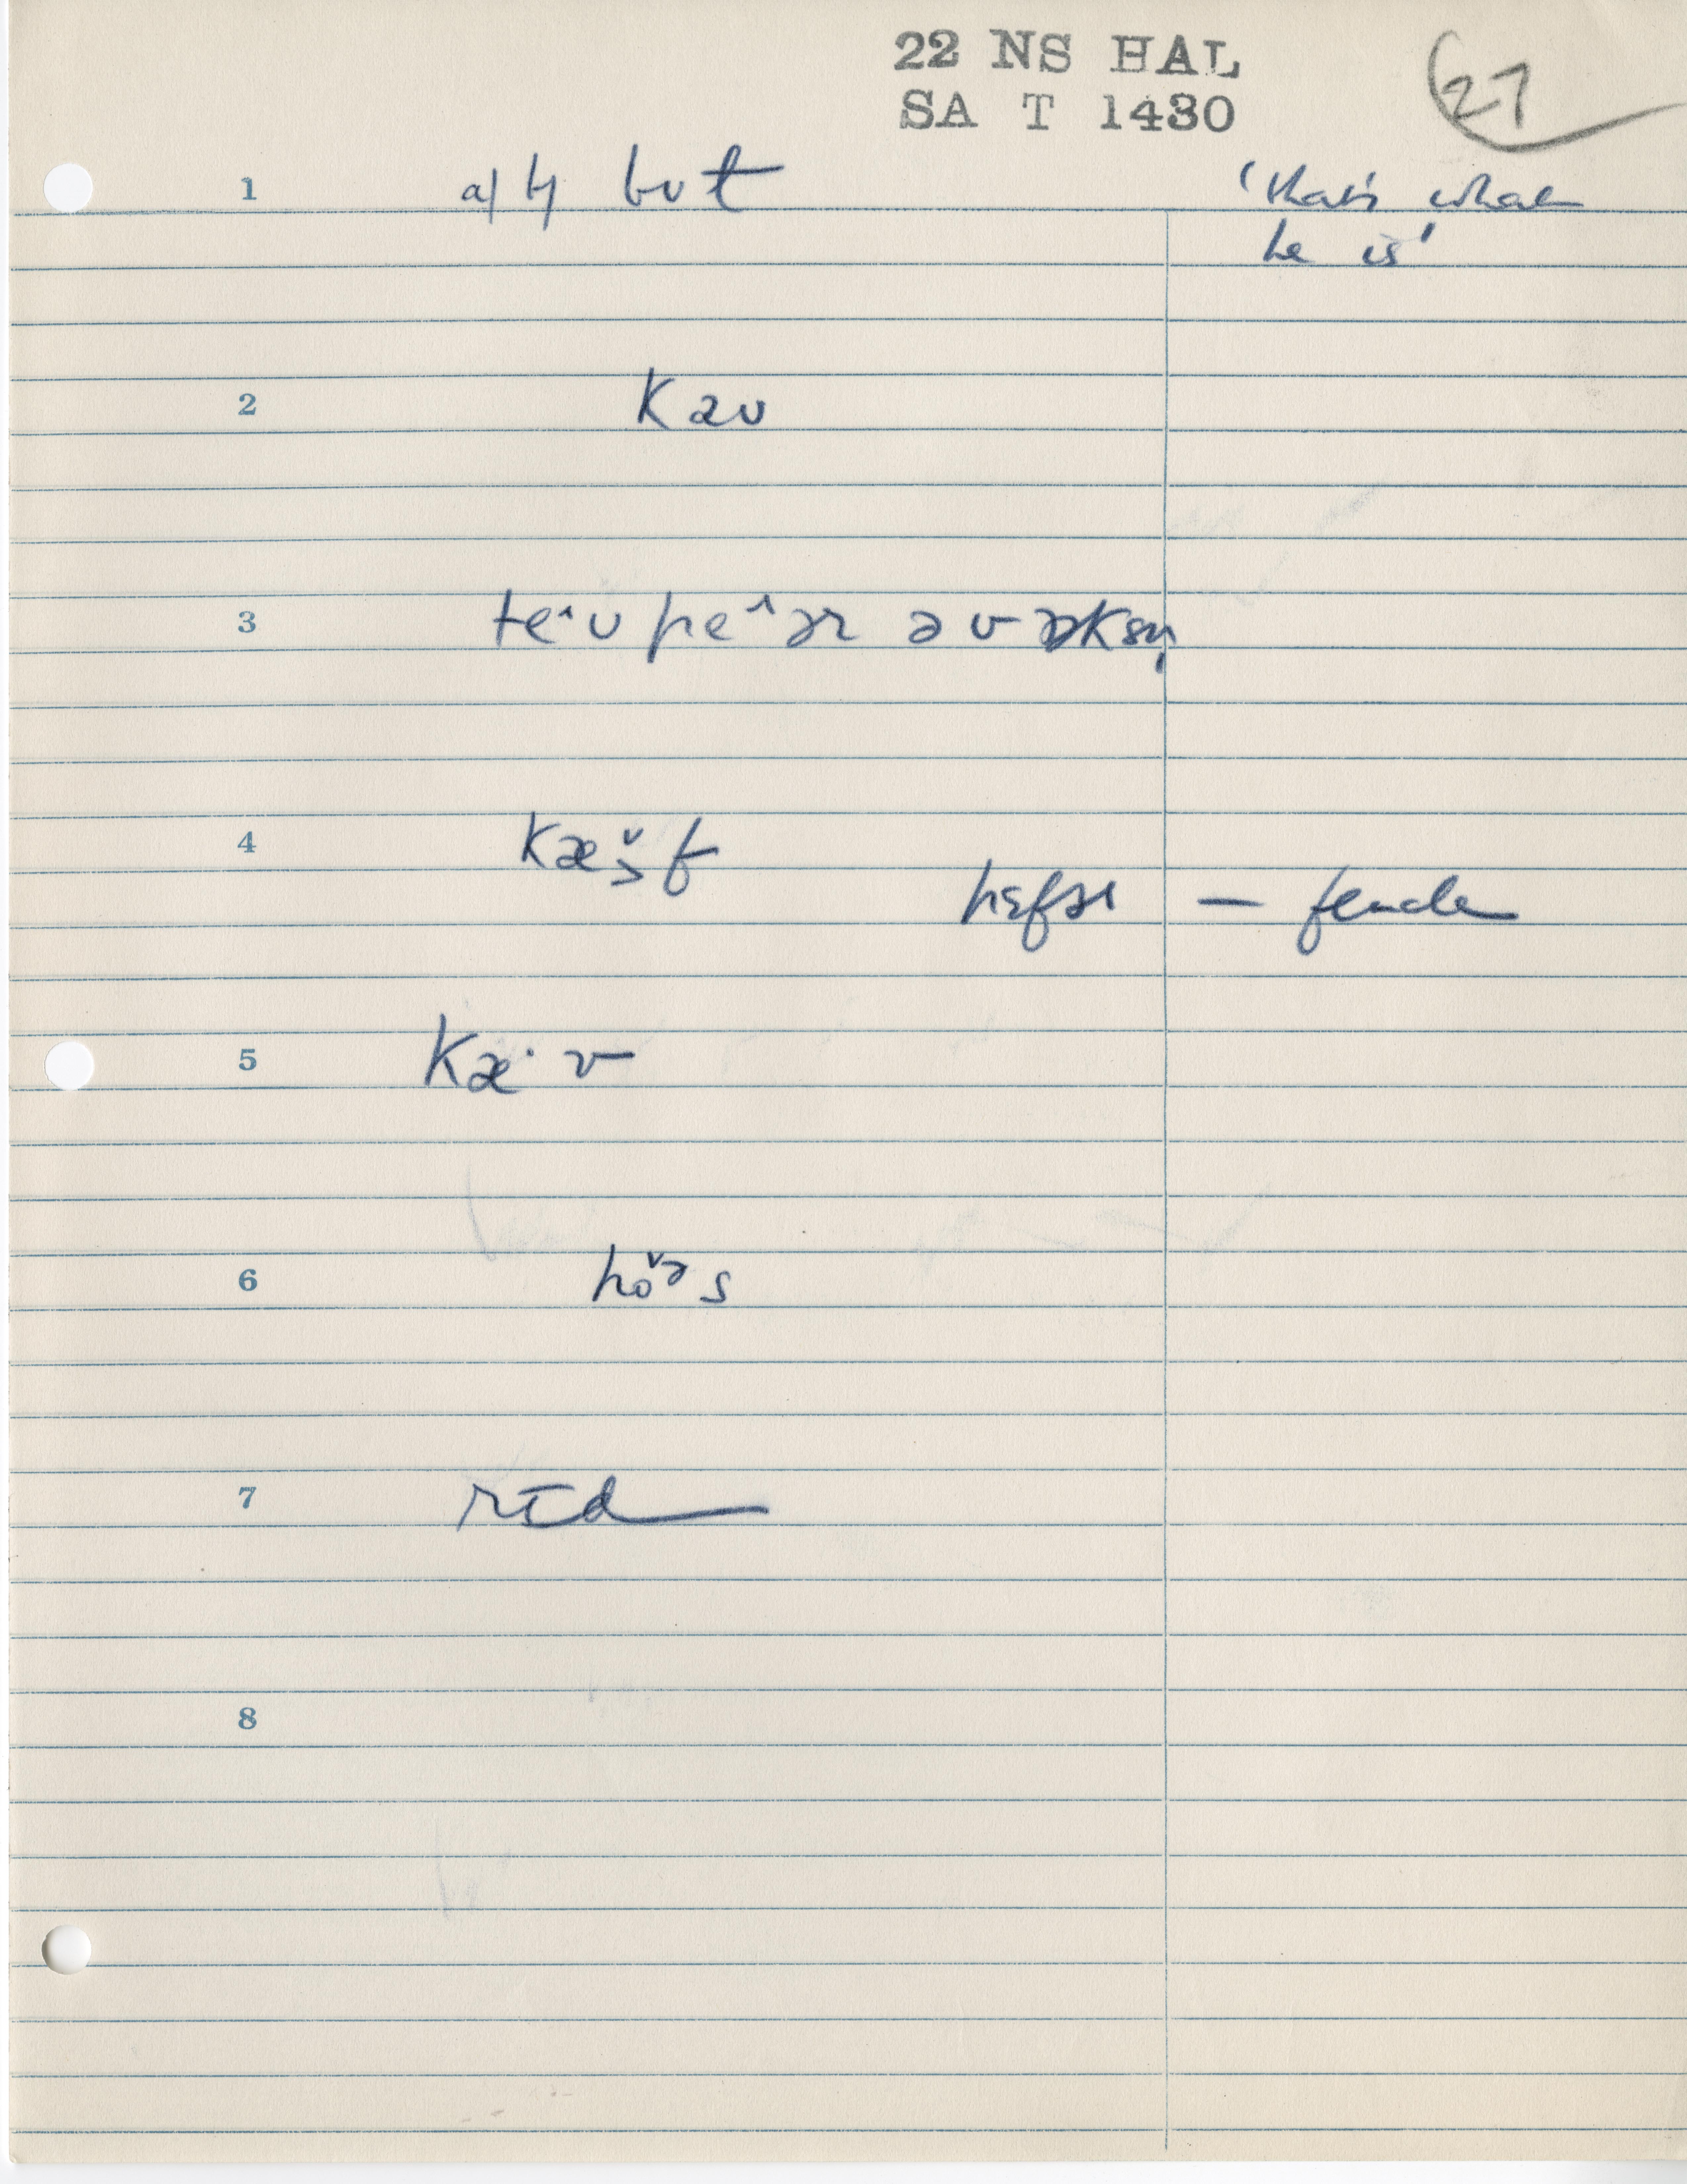 22 NS HAL
SA T 1430
27
1 a/b/ but 'that's what
he is'
2 kaʊ
3 te^ʊ pe^ər əv ɒksn̩
4 kæ>̌f
hɛfər — female
5 kæ·v
6 ho˅əs
7 rɪd
8